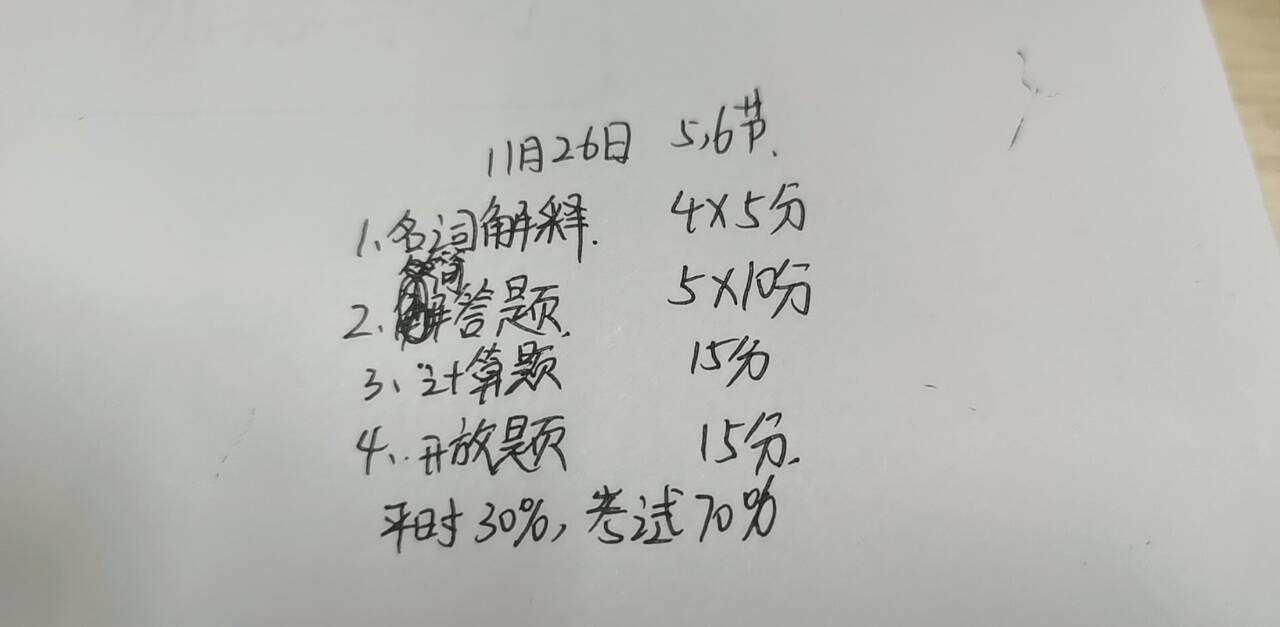 11月26日 5,6节.
1、名词解释. 4×5分
2、简答题. 5×10分
3、计算题 15分
4、开放题 15分.
平时30%,考试70%